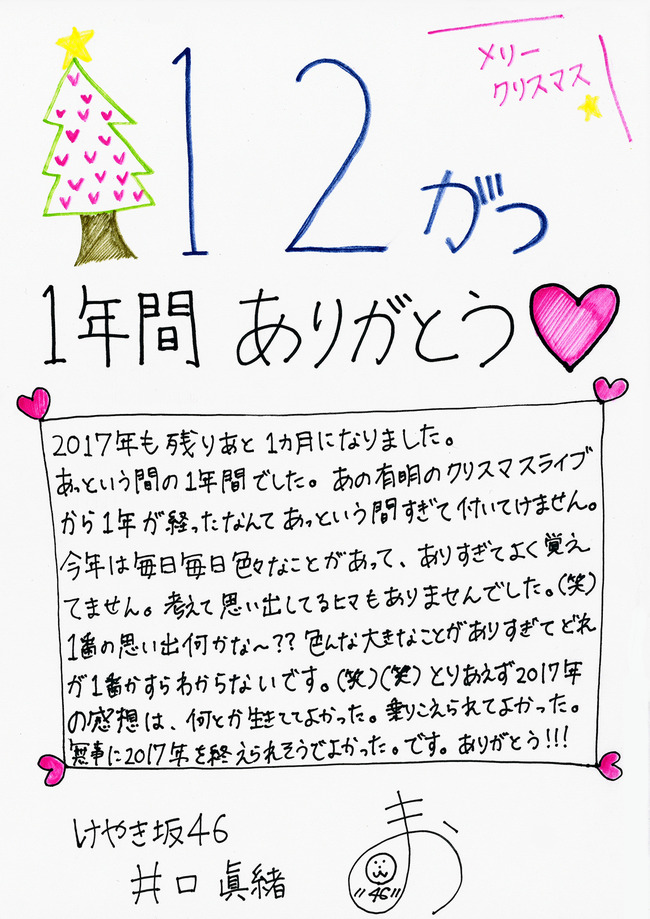 メリー
クリスマス
12がつ
1年間 ありがとう
2017年も残りあと1カ月になりました。
あっという間の1年間でした。あの有明のクリスマスライブ
から1年が経ったなんてあっという間すぎて付いてけません。
今年は毎日毎日色々なことがあって、ありすぎてよく覚え
てません。考えて思い出してるヒマもありませんでした。(笑)
1番の思い出何かな〜??色んな大きなことがありすぎてどれ
が1番かすらわからないです。(笑)(笑)とりあえず2017年
の感想は、何とか生きててよかった。乗りこえられてよかった。
無事に2017年を終えられそうでよかった。です。ありがとう!!!
けやき坂46
井口 眞緒
まお
"46"